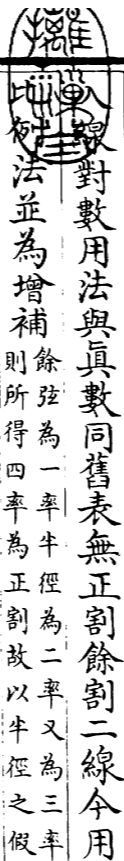 八線對數用法與眞數同舊表無正割餘割二線今用
比例法並為增補
餘弦為一率半徑為二率又為三率
則所得四率為正割故以半徑之假